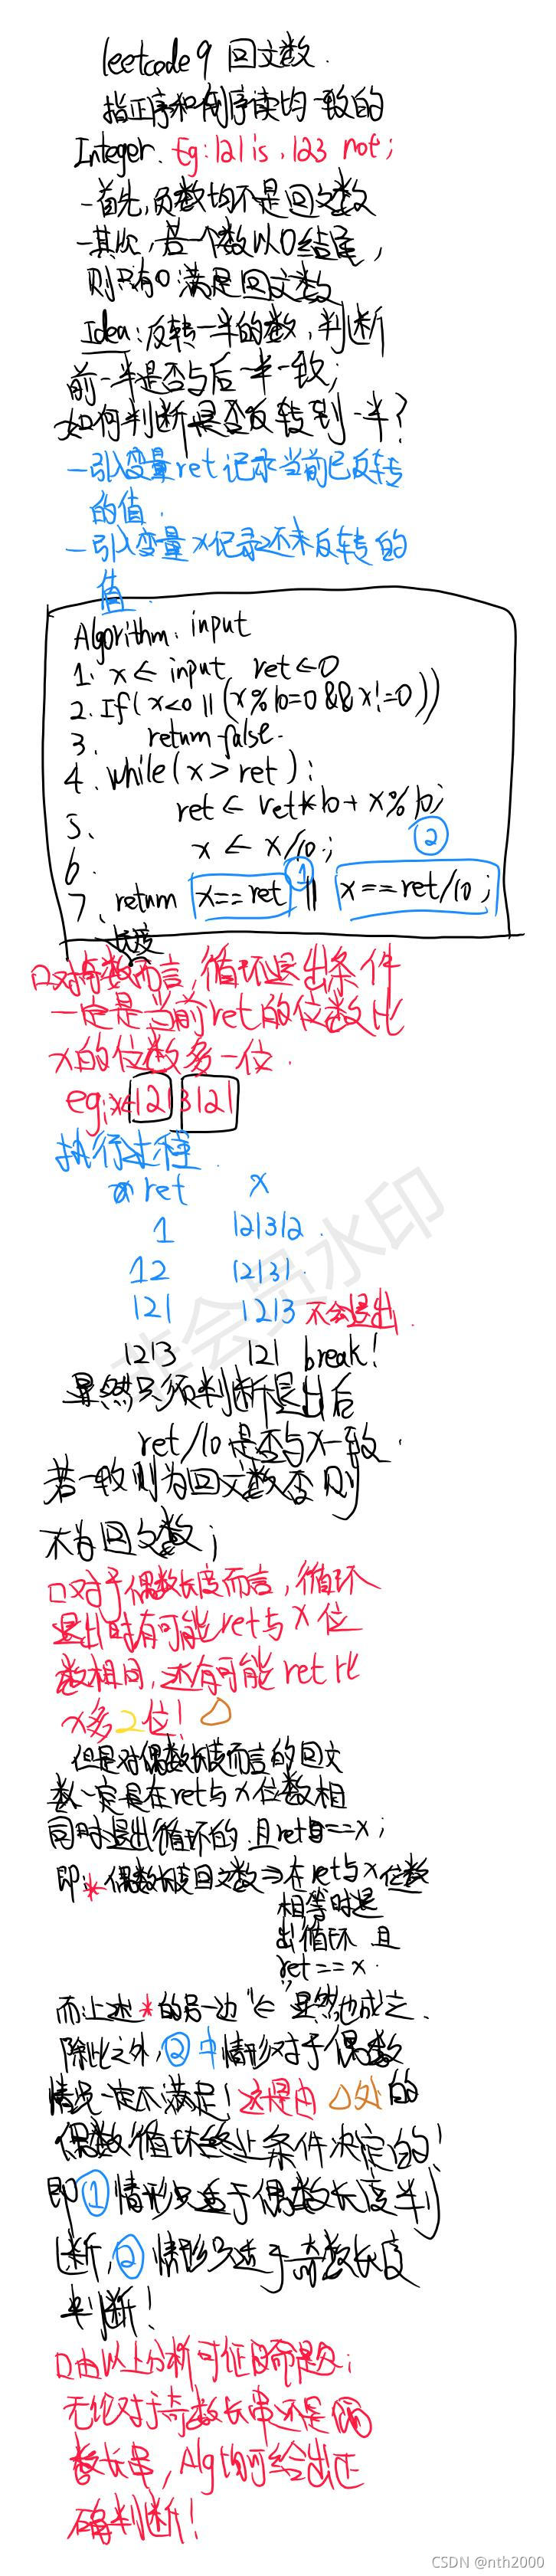 leetcode 9 回文数.
指正序和倒序读均一致的
Integer. Eg: 121 is, 123 not;
-首先,负数均不是回文数
-其次,若一个数以0结尾,
则只有0满足回文数
Idea: 反转一半的数,判断
前一半是否与后一半一致;
如何判断是否反转到一半?
-引入变量ret记录当前已反转
的值.
-引入变量x记录还未反转的
值.
Algorithm. input
1. x ← input ret ← 0
2. If( x<0 || (x%10=0 && x!=0))
3. return false.
4. while(x > ret):
5. ret ← ret*10 + x%10;
6 x ← x/10;
7. return x==ret ① || x==ret/10; ②
长度
口对奇数而言,循环退出条件
一定是当前ret的位数比
x的位数多一位.
eg: x=1213121
执行过程
ret x
1 121312.
12 12131.
121 1213 不会退出.
1213 121 break!
显然只须判断退出后
ret/10是否与x一致.
若一致则为回文数否则
不为回文数;
口对于偶数长度而言,循环
退出时有可能ret与x位
数相同,还有可能ret比
x多2位! △
但是对偶数长度而言的回文
数一定是在ret与x位数相
同时退出循环的且ret==x;
即:* 偶数长度回文数⇒在ret与x位数
相等时退
出循环 且
ret==x.
而上述*的另一边"⇐"显然也成立.
除此之外,②中情形对于偶数
情况一定不满足!这是由△处的
偶数循环终止条件决定的!
即①情形只适于偶数长度判
断,②情形只适于奇数长度
判断!
口由以上分析可证明命题:
无论对于奇数长串还是偶
数长串,Alg均可给出正
确判断!
非会员水印
CSDN @nth2000